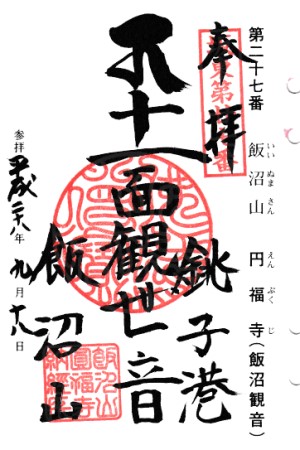 第二十七番 飯沼山 円福寺(飯沼観音)
いい ぬま さん えん ぷく じ
奉拝
銚子港
十一面観世音
飯沼山
参拝 平成二八年 九月十八日
飯沼山
圓福寺